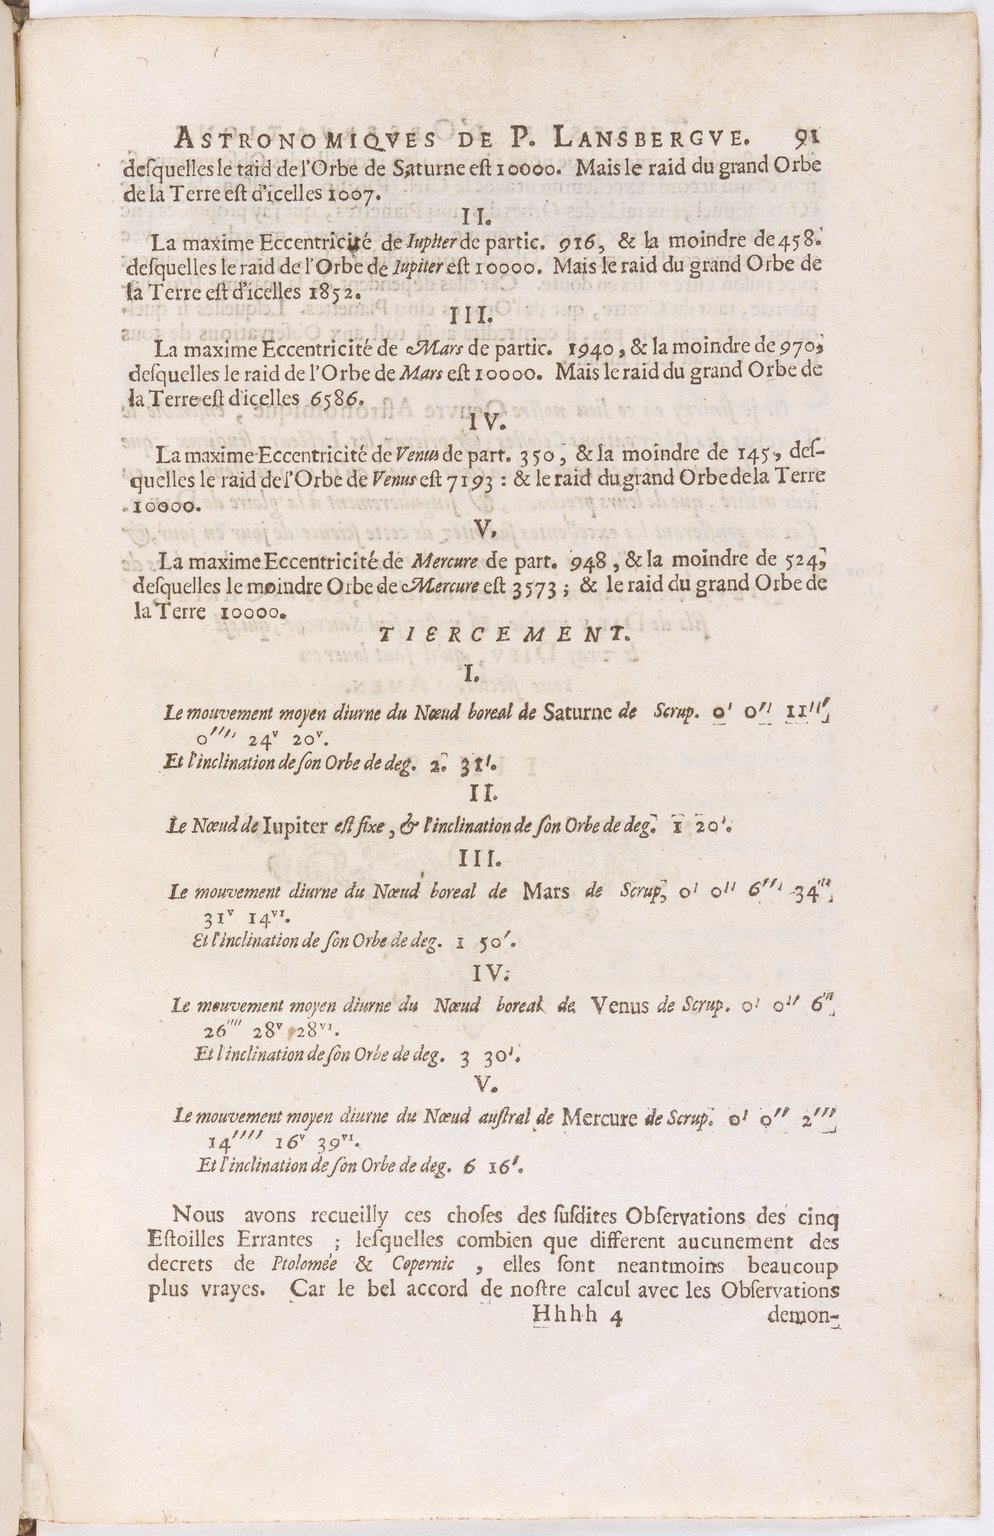 ASTRONOMIQVES DE P. LANSBERGVE. 91
deſquelles le raid de l'Orbe de Saturne eſt 10000. Mais le raid du grand Orbe
de la Terre eſt d'icelles 1007.
II.
La maxime Eccentricité de Iupiter de partic. 916, & la moindre de 458.
deſquelles le raid de l'Orbe de Iupiter eſt 10000. Mais le raid du grand Orbe de
la Terre eſt d'icelles 1852.
III.
La maxime Eccentricité de Mars de partic. 1940, & la moindre de 970,
deſquelles le raid de l'Orbe de Mars eſt 10000. Mais le raid du grand Orbe de
la Terre eſt d'icelles 6586.
IV.
La maxime Eccentricité de Venus de part. 350, & la moindre de 145, deſ-
quelles le raid de l'Orbe de Venus eſt 7193 : & le raid du grand Orbe de la Terre
10000.
V.
La maxime Eccentricité de Mercure de part. 948, & la moindre de 524,
deſquelles le moindre Orbe de Mercure eſt 3573 ; & le raid du grand Orbe de
la Terre 10000.
TIERCEMENT.
I.
Le mouvement moyen diurne du Nœud boreal de Saturne de Scrup. 0′ 0″ 11‴
0⁗ 24ᵛ 20ᵛ.
Et l'inclination de ſon Orbe de deg. 2. 31′.
II.
Le Nœud de Iupiter eſt fixe, & l'inclination de ſon Orbe de deg. 1 20′.
III.
Le mouvement diurne du Nœud boreal de Mars de Scrup, 0′ 0″ 6‴ 34⁗
31ᵛ 14ᵛᴵ.
Et l'inclination de ſon Orbe de deg. 1 50′.
IV.
Le mouvement moyen diurne du Nœud boreal de Venus de Scrup. 0′ 0″ 6‴
26⁗ 28ᵛ 28ᵛᴵ.
Et l'inclination de ſon Orbe de deg. 3 30′.
V.
Le mouvement moyen diurne du Nœud auſtral de Mercure de Scrup. 0′ 0″ 2‴
14⁗ 16ᵛ 39ᵛᴵ.
Et l'inclination de ſon Orbe de deg. 6 16′.
Nous avons recueilly ces choſes des ſuſdites Obſervations des cinq
Eſtoilles Errantes ; leſquelles combien que different aucunement des
decrets de Ptolomée & Copernic , elles ſont neantmoins beaucoup
plus vrayes. Car le bel accord de noſtre calcul avec les Obſervations
Hhhh 4 demon-